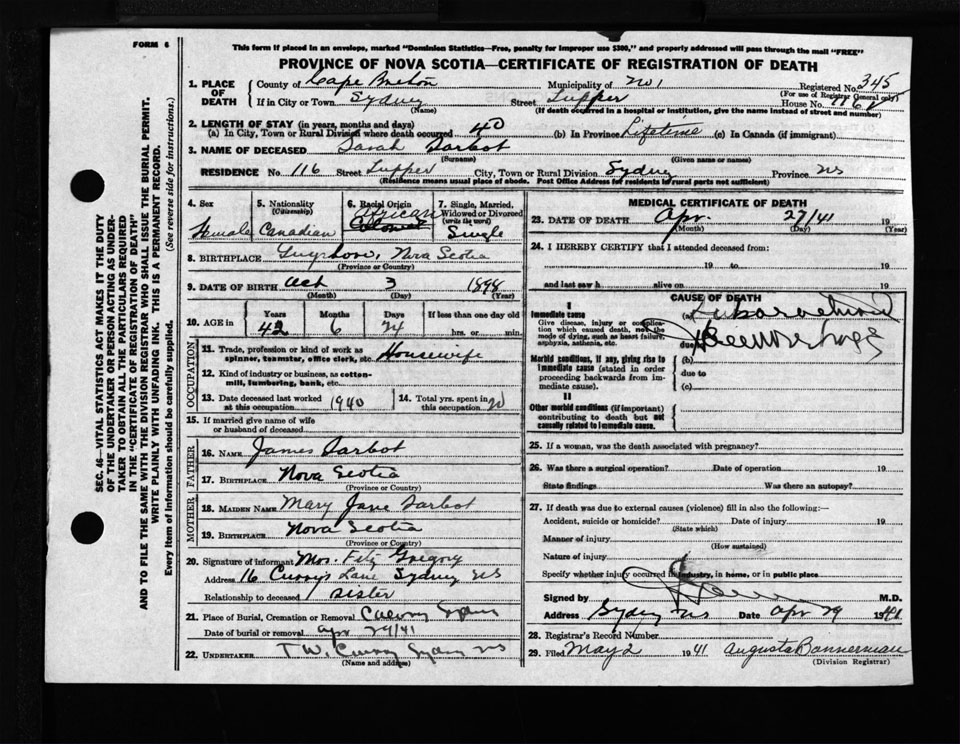 FORM 6
This form if placed in an envelope, marked "Dominion Statistics—Free, penalty for improper use $300," and properly addressed will pass through the mail "FREE"
PROVINCE OF NOVA SCOTIA—CERTIFICATE OF REGISTRATION OF DEATH
1. PLACE OF DEATH County of Cape Breton Municipality of No 1 Registered No 345
(For use of Registrar General only)
If in City or Town Sydney Street Tupper House No.
(Name) (If death occurred in a hospital or institution, give the name instead of street and number)
2. LENGTH OF STAY (in years, months and days)
(a) In City, Town or Rural Division where death occurred 40 (b) In Province Lifetime (c) In Canada (if immigrant)
3. NAME OF DECEASED Sarah
(Surname) (Given name or names)
RESIDENCE No. 116 Street Tupper City, Town or Rural Division Sydney Province NS
(Residence means usual place of abode. Post Office Address for residents in rural parts not sufficient)
4. Sex 5. Nationality (Citizenship) 6. Racial Origin 7. Single, Married, Widowed or Divorced (write the word)
Female Canadian African Single
8. BIRTHPLACE Nova Scotia
(Province or Country)
9. DATE OF BIRTH Oct 3 1898
(Month) (Day) (Year)
10. AGE in Years Months Days If less than one day old
42 6 24 hrs. or min.
OCCUPATION
11. Trade, profession or kind of work as spinner, teamster, office clerk, etc. Housewife
12. Kind of industry or business, as cotton-mill, lumbering, bank, etc.
13. Date deceased last worked at this occupation 1940 14. Total yrs. spent in this occupation 20
15. If married give name of wife or husband of deceased
FATHER
16. NAME James
17. BIRTHPLACE Nova Scotia
(Province or Country)
MOTHER
18. MAIDEN NAME Mary Jane
19. BIRTHPLACE Nova Scotia
(Province or Country)
20. Signature of informant Mrs. Gregory
Address 16 Currys Lane Sydney NS
Relationship to deceased sister
21. Place of Burial, Cremation or Removal Sydney
Date of burial or removal Apr 29/41
22. UNDERTAKER T W. Curry Sydney NS
(Name and address)
MEDICAL CERTIFICATE OF DEATH
23. DATE OF DEATH Apr. 27/41 19
(Month) (Day) (Year)
24. I HEREBY CERTIFY that I attended deceased from:
19 to 19
and last saw h alive on 19
CAUSE OF DEATH
I
Immediate cause (a)
Give disease, injury or complication which caused death, not the mode of dying, such as heart failure, asphyxia, asthenia, etc.
due to
Morbid conditions, if any, giving rise to immediate cause (stated in order proceeding backwards from immediate cause). (b)
due to
(c)
II
Other morbid conditions (if important) contributing to death but not causally related to immediate cause.
25. If a woman, was the death associated with pregnancy?
26. Was there a surgical operation? Date of operation 19
State findings Was there an autopsy?
27. If death was due to external causes (violence) fill in also the following:—
Accident, suicide or homicide? Date of injury 19
(State which)
Manner of injury
(How sustained)
Nature of injury
Specify whether injury occurred in industry, in home, or in public place
Signed by M.D.
Address Sydney NS Date Apr 29 1941
28. Registrar's Record Number
29. Filed May 2 1941 Augusta Bannerman
(Division Registrar)
SEC. 46—VITAL STATISTICS ACT MAKES IT THE DUTY
OF THE UNDERTAKER OR PERSON ACTING AS UNDER-
TAKER TO OBTAIN ALL THE PARTICULARS REQUIRED
IN THE "CERTIFICATE OF REGISTRATION OF DEATH"
AND TO FILE THE SAME WITH THE DIVISION REGISTRAR WHO SHALL ISSUE THE BURIAL PERMIT.
WRITE PLAINLY WITH UNFADING INK. THIS IS A PERMANENT RECORD.
Every item of information should be carefully supplied. (See reverse side for instructions.)